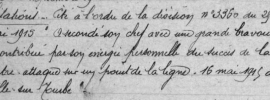 Citations. Cité à l'ordre de la division n° 3360 du 2
mai 1915 "A secondé son chef avec une grande bravou
contribué par son énergie personnelle du succès de la
attaque sur un point de la ligne. 16 mai 1915
sur Tourbe"